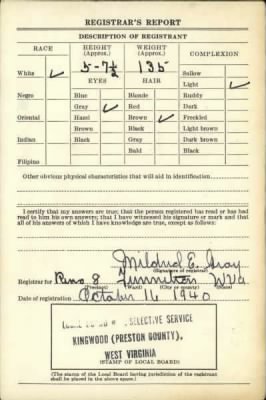 REGISTRAR'S REPORT
DESCRIPTION OF REGISTRANT
RACE HEIGHT (Approx.) WEIGHT (Approx.) COMPLEXION
White ✓ 5-7½ 135 Sallow
EYES HAIR Light ✓
Negro Blue Blonde Ruddy
Gray ✓ Red Dark
Oriental Hazel Brown ✓ Freckled
Brown Black Light brown
Indian Black Gray Dark brown
Bald Black
Filipino
Other obvious physical characteristics that will aid in identification
I certify that my answers are true; that the person registered has read or has had
read to him his own answers; that I have witnessed his signature or mark and that
all of his answers of which I have knowledge are true, except as follows:
Mildred E. Gray
(Signature of registrar)
Registrar for Reno 8 W.Va
(Precinct) (Ward) (City or county) (State)
Date of registration October 16 1940
SELECTIVE SERVICE
KINGWOOD (PRESTON COUNTY),
WEST VIRGINIA
(STAMP OF LOCAL BOARD)
(The stamp of the Local Board having jurisdiction of the registrant
shall be placed in the above space.)